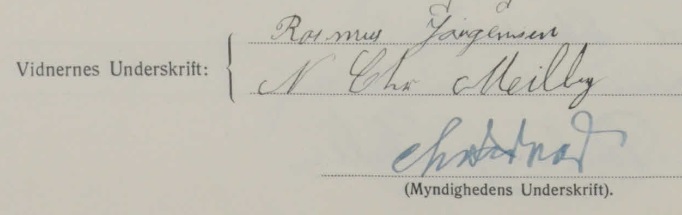 Rasmus Jørgensen
Vidnernes Underskrift:
N Chr Meilby
(Myndighedens Underskrift).